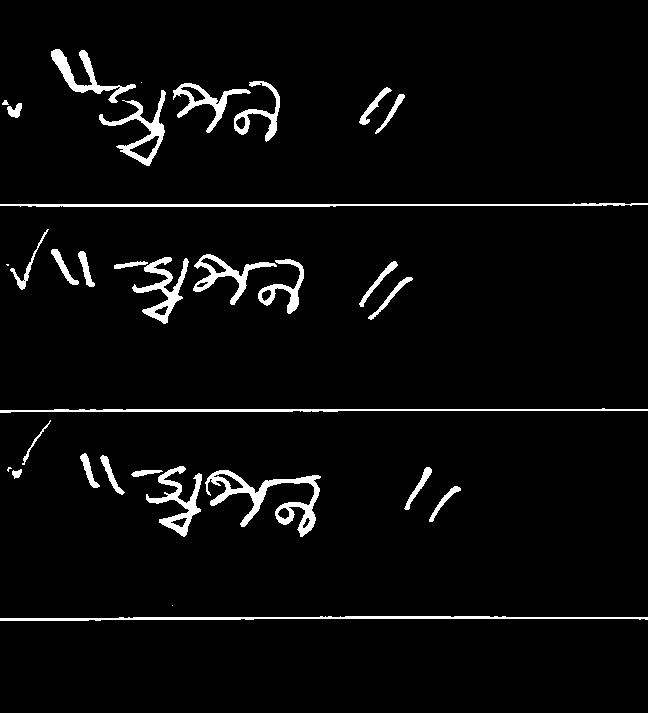 "স্বপন"
"স্বপন"
"স্বপন"